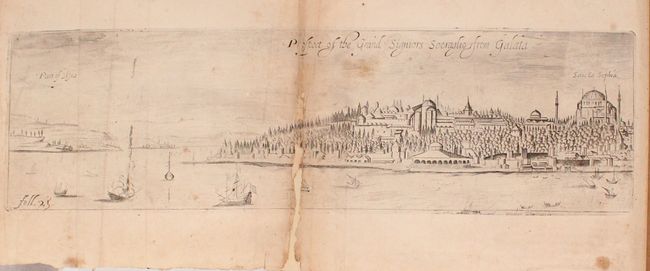 Prospect of the Grand Signiors Serraglio from Galata
Part of Asia
Sancta Sophia
foll. 25